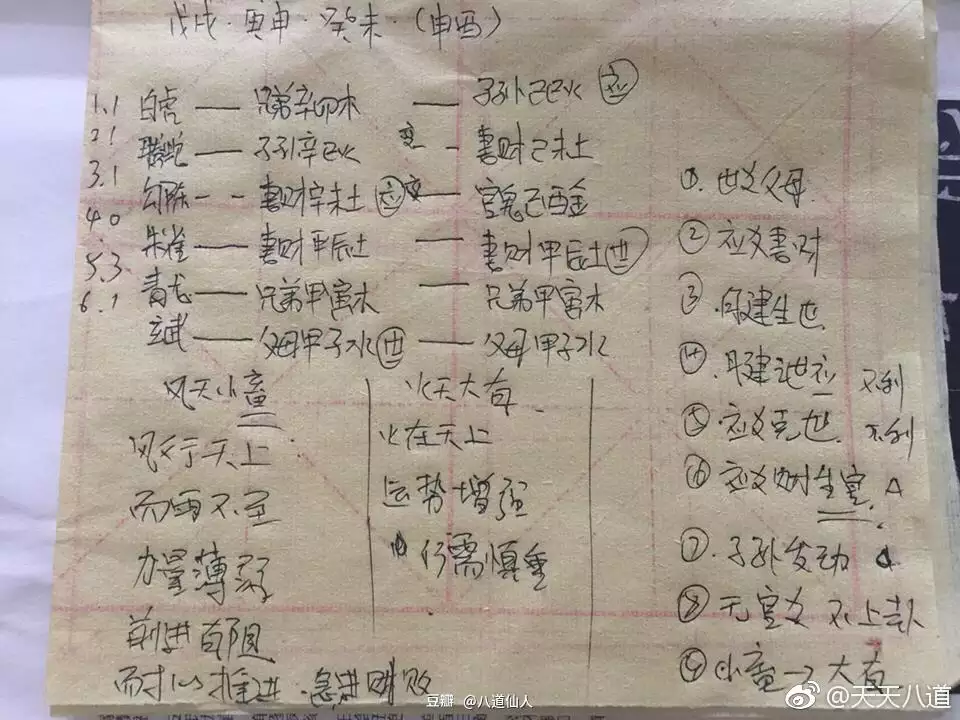 戊戌·庚申·癸未（申酉）
1.1 白虎 — 兄弟辛卯木 — 子孙己巳火 应
2.1 螣蛇 — 子孙辛巳火 变 - 妻财己未土
3.1 勾陈 - - 妻财辛未土 应 变 — 官鬼己酉金
4.0 朱雀 — 妻财甲辰土 — 妻财甲辰土 世
5.3 青龙 — 兄弟甲寅木 — 兄弟甲寅木
6.1 玄武 — 父母甲子水 世 — 父母甲子水
风天小畜
风行天上
而雨不至
力量薄弱
前进有阻
而才以推进·急进则败
火天大有
火在天上
运势增强
仍需慎重
①.世爻父母
②应爻妻财
③.月建生世
④.月建 应 不利
⑤.应爻克世 不利
⑥应爻财生官
⑦.子孙发动
⑧无官爻 不上卦
⑨小畜→大有
豆瓣 @八道仙人
@天天八道